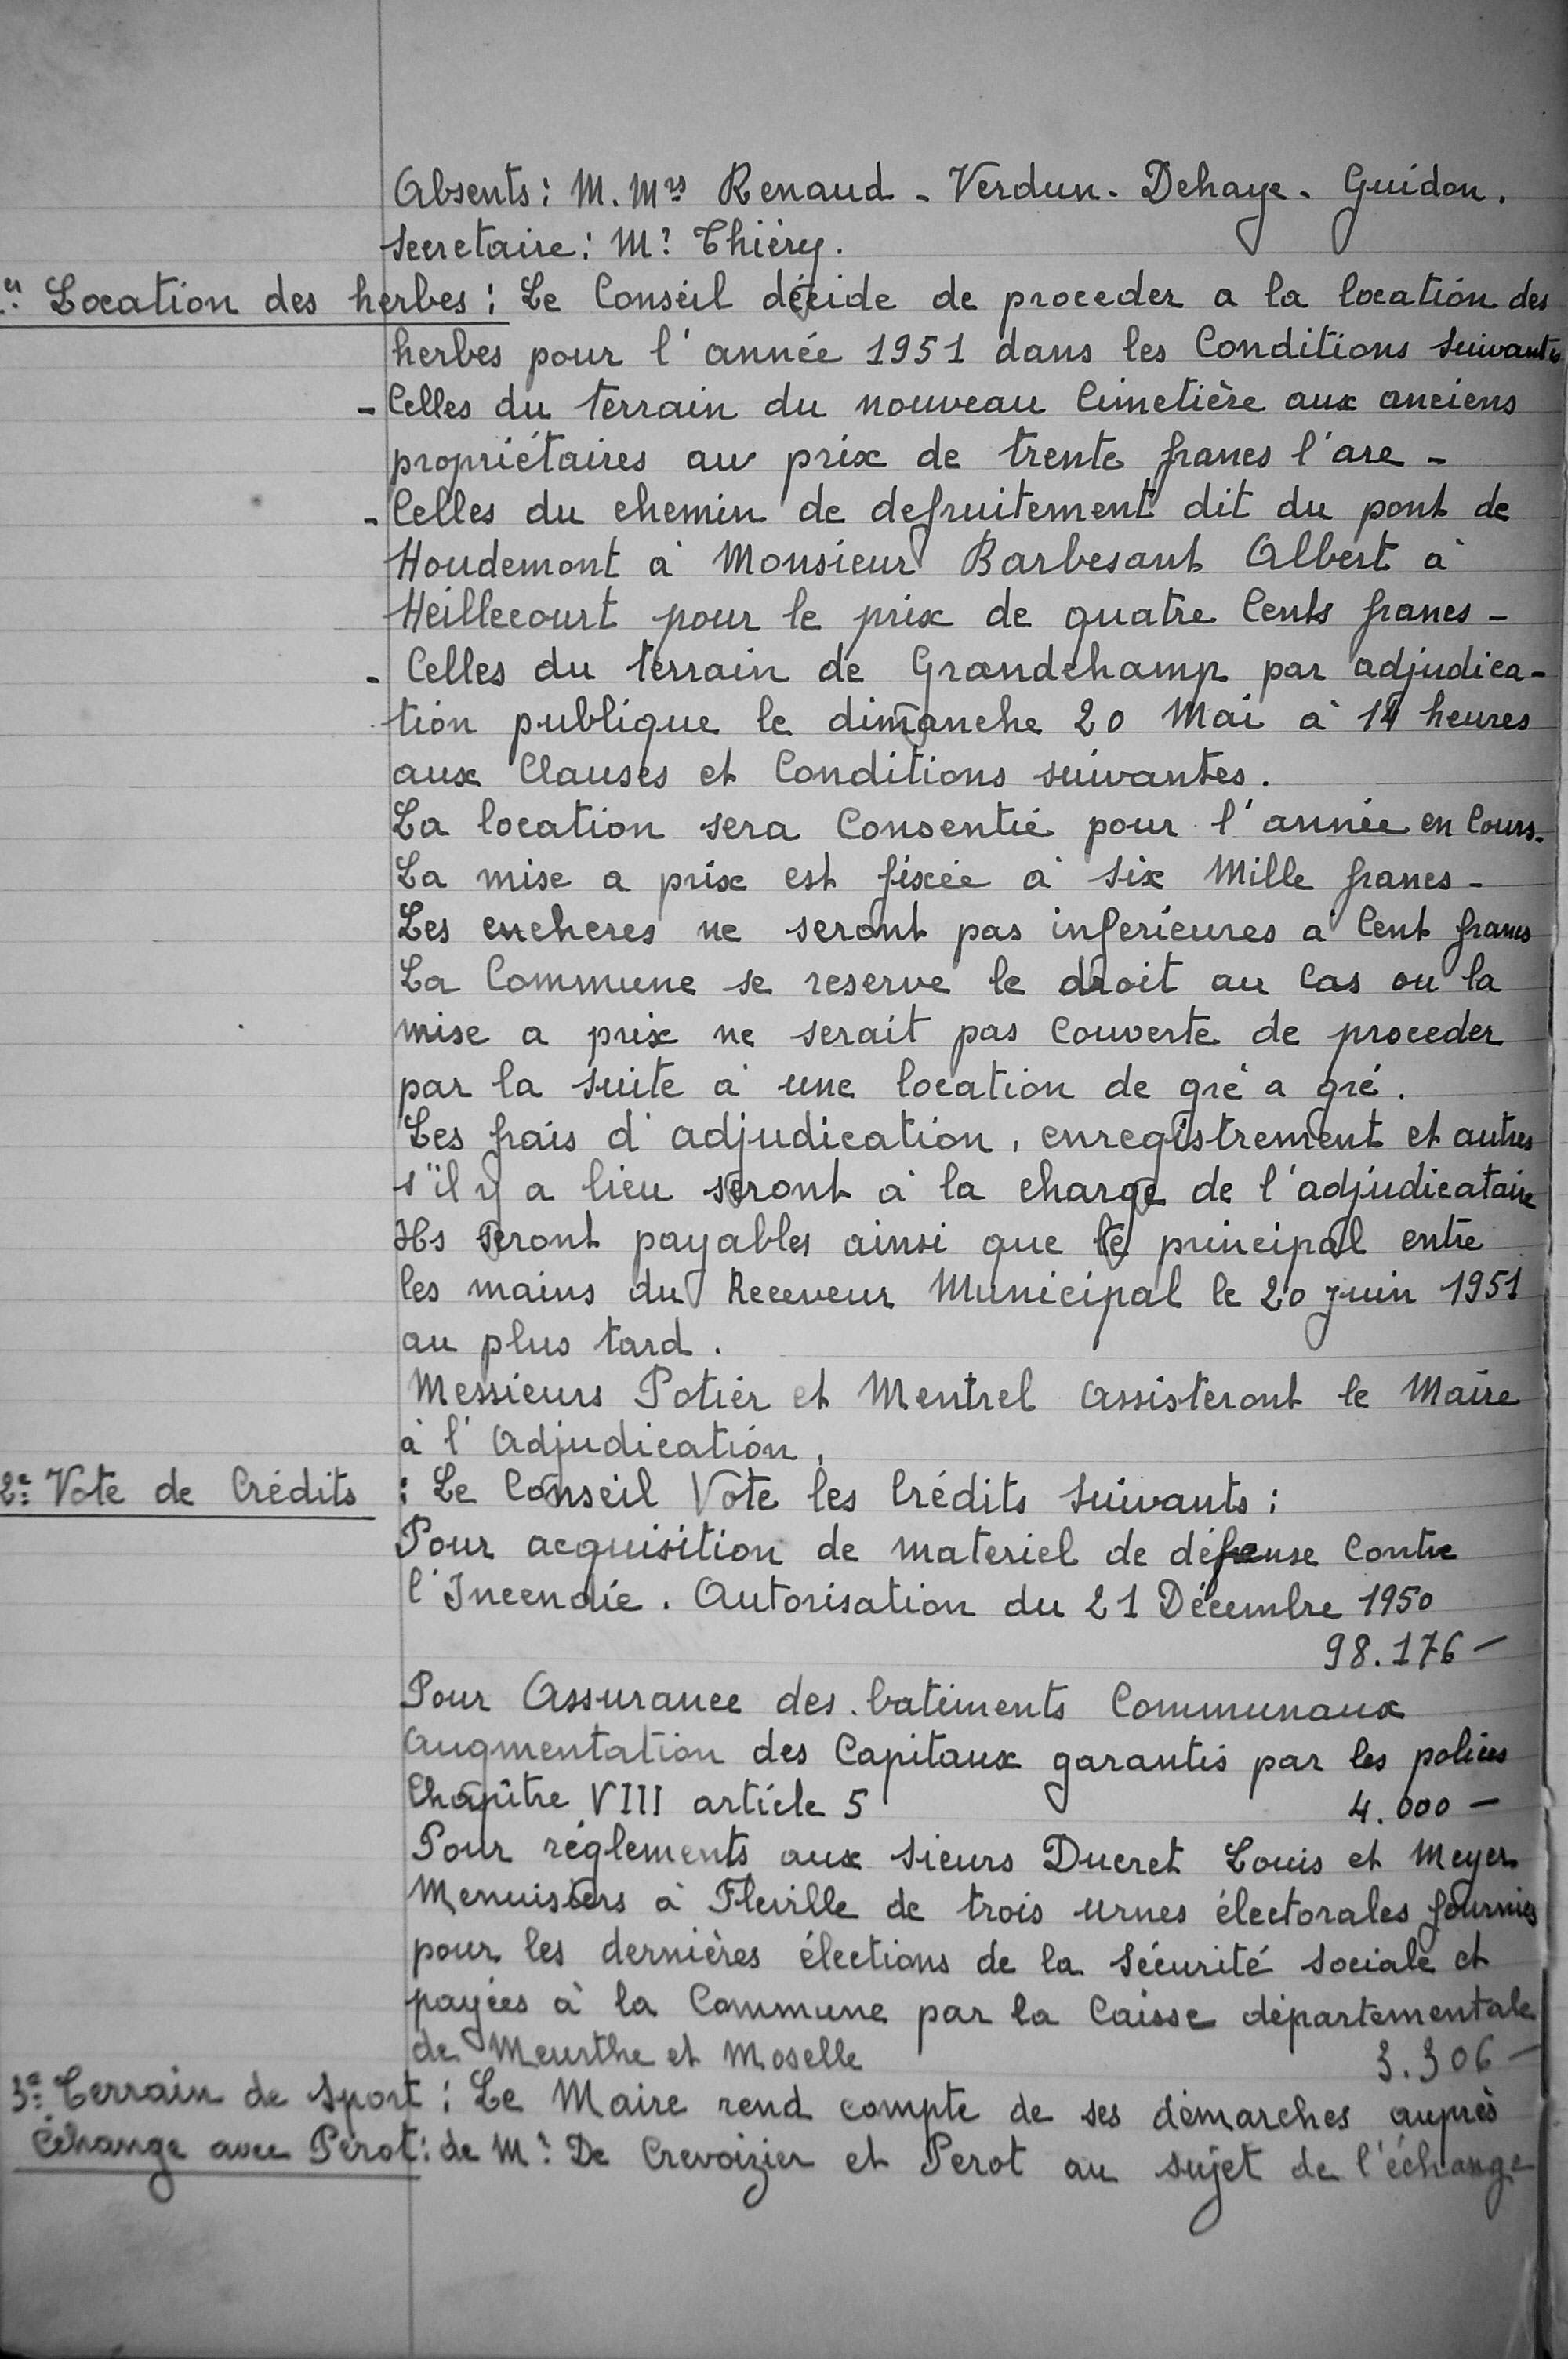 Absents : M. Mrs Renaud - Verdun - Dehaye - Guidon.
Secretaire : Mr Thiéry.
Location des herbes : Le Conseil décide de proceder a la location des
herbes pour l'année 1951 dans les Conditions suivantes
- Celles du terrain du nouveau Cimetière aux anciens
propriétaires au prix de trente francs l'are -
- Celles du chemin de defruitement dit du pont de
Houdemont à Monsieur Barbesant Albert à
Heillecourt pour le prix de quatre Cents francs -
- Celles du terrain de Grandchamp par adjudica-
tion publique le dimanche 20 Mai à 14 heures
aux Clauses et Conditions suivantes.
La location sera Consentie pour l'année en Cours.
La mise a prix est fixée à six Mille francs -
Les encheres ne seront pas inferieures à Cent francs
La Commune se reserve le droit au Cas ou la
mise a prix ne serait pas Couverte de proceder
par la suite à une location de gré a gré.
Les frais d'adjudication, enregistrement et autres
s'il y a lieu seront à la charge de l'adjudicataire
Ils seront payables ainsi que le principal entre
les mains du Receveur Municipal le 20 juin 1951
au plus tard.
Messieurs Potier et Mentrel Assisteront le Maire
à l'Adjudication.
2e Vote de Crédits : Le Conseil Vote les Crédits suivants :
Pour acquisition de materiel de défense Contre
l'Incendie. Autorisation du 21 Décembre 1950
98.176 -
Pour Assurance des batiments Communaux
Augmentation des Capitaux garantis par les polices
Chapitre VIII article 5 4.000 -
Pour réglements aux sieurs Ducret Louis et Meyer
Menuisiers à Fleville de trois urnes électorales fournies
pour les dernières élections de la Sécurité Sociale et
payées à la Commune par la Caisse départementale
de Meurthe et Moselle 3.306 -
3e Terrain de Sport : Le Maire rend compte de ses démarches auprès
échange avec Perot : de Mr De Crevoizier et Perot au sujet de l'échange